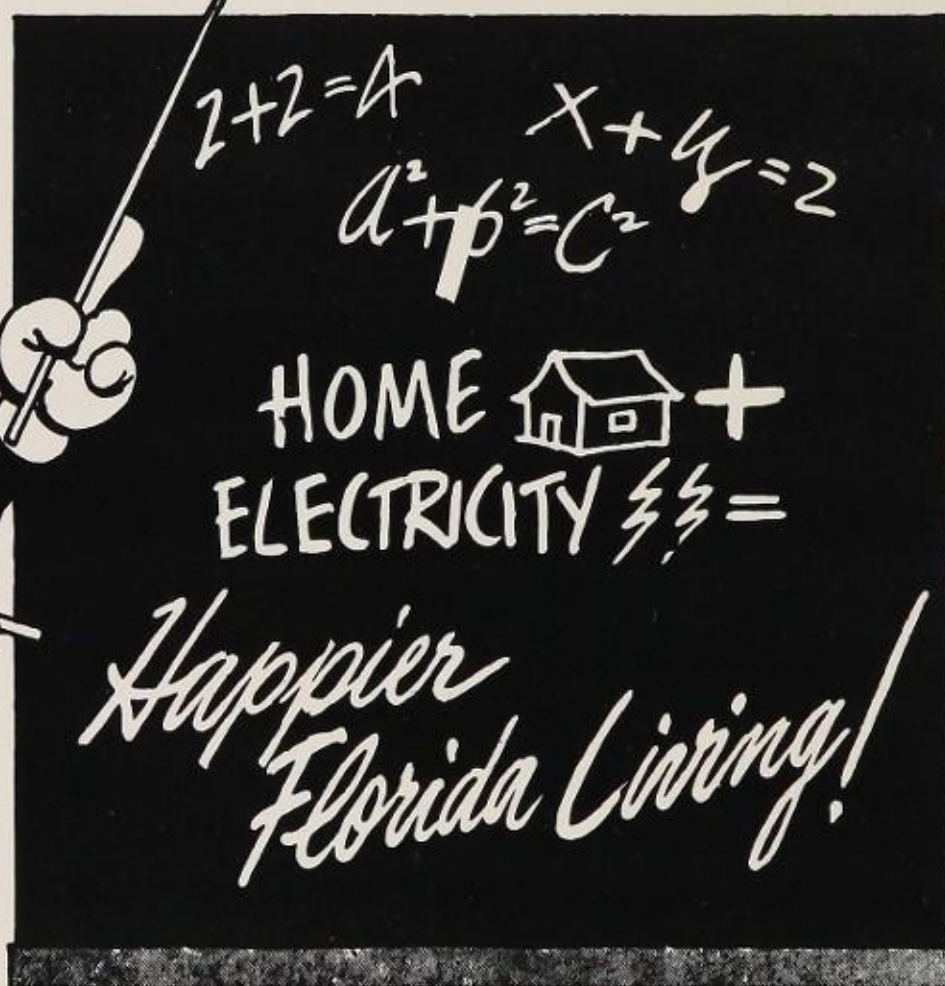 2+2=4
x+y=2
a²+b²=c²
HOME +
ELECTRICITY =
Happier
Florida Living!